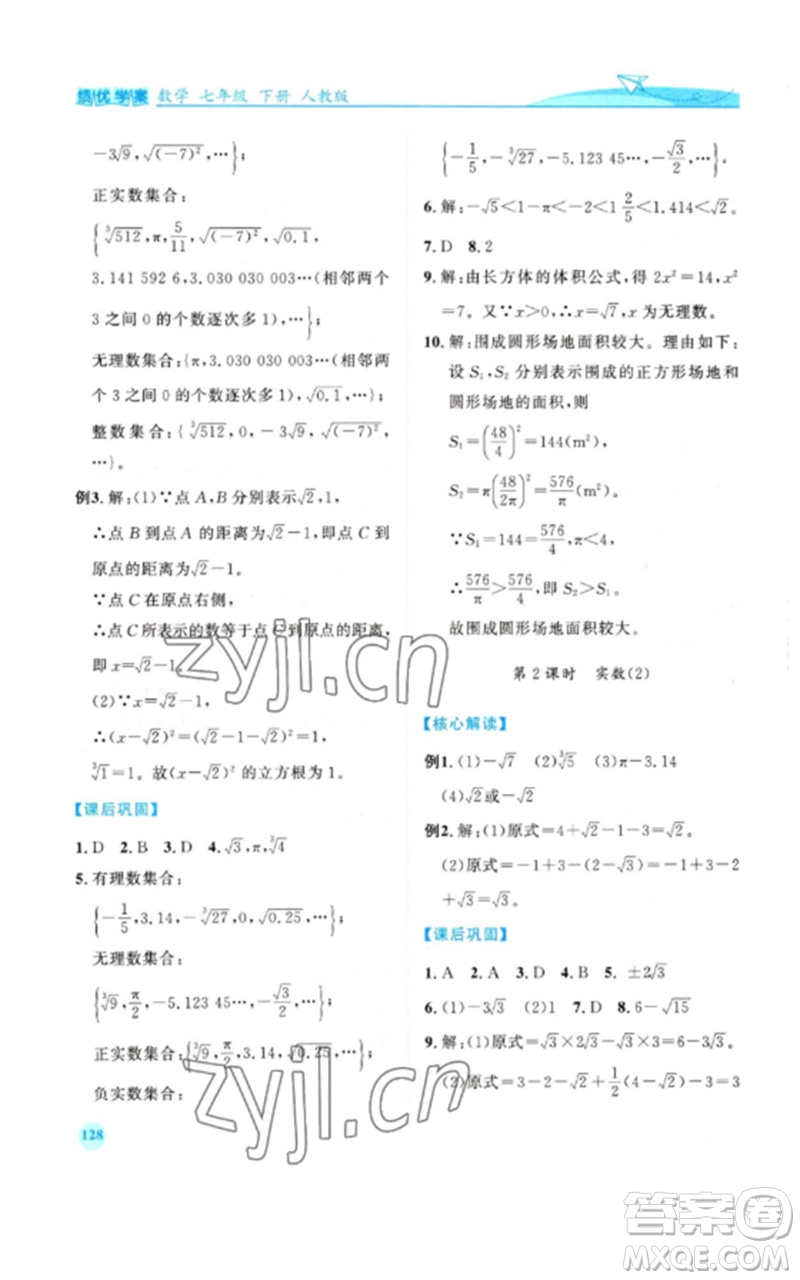 培优学案 数学 七年级 下册 人教版
-3√9,√(-7)²,…};
正实数集合:
{³√512,π,5/11,√(-7)²,√0.1,
3.141 592 6,3.030 030 003…(相邻两个
3 之间 0 的个数逐次多 1),…};
无理数集合:{π,3.030 030 003…(相邻两
个 3 之间 0 的个数逐次多 1),√0.1,…};
整数集合:{³√512,0,-3√9,√(-7)²,
…}。
例3. 解:(1)∵点 A,B 分别表示√2,1,
∴点 B 到点 A 的距离为√2-1,即点 C 到
原点的距离为√2-1。
∵点 C 在原点右侧,
∴点 C 所表示的数等于点 C 到原点的距离,
即 x=√2-1。
(2)∵x=√2-1,
∴(x-√2)²=(√2-1-√2)²=1,
³√1=1。故(x-√2)² 的立方根为 1。
【课后巩固】
1. D 2. B 3. D 4. √3,π,³√4
5. 有理数集合:
{-1/5,3.14,-³√27,0,√0.25,…};
无理数集合:
{³√9,π/2,-5.123 45…,-√3/2,…};
正实数集合:{³√9,π/2,3.14,√0.25,…};
负实数集合:
128
{-1/5,-³√27,-5.123 45…,-√3/2,…}。
6. 解:-√5<1-π<-2<1 2/5<1.414<√2。
7. D 8. 2
9. 解:由长方体的体积公式,得 2x²=14,x²
=7。又∵x>0,∴x=√7,x 为无理数。
10. 解:围成圆形场地面积较大。理由如下:
设 S₁,S₂ 分别表示围成的正方形场地和
圆形场地的面积,则
S₁=(48/4)²=144(m²)
S₂=π(48/2π)²=576/π(m²)
∵S₁=144=576/4,π<4,
∴576/π>576/4,即 S₂>S₁。
故围成圆形场地面积较大。
第 2 课时 实数(2)
【核心解读】
例1. (1)-√7 (2)³√5 (3)π-3.14
(4)√2或-√2
例2. 解:(1)原式=4+√2-1-3=√2。
(2)原式=-1+3-(2-√3)=-1+3-2
+√3=√3。
【课后巩固】
1. A 2. A 3. D 4. B 5. ±2√3
6. (1)-3√3 (2)1 7. D 8. 6-√15
9. 解:(1)原式=√3×2√3-√3×√3=6-3=3
(2)原式=3-2-√2+1/2(4+2√2)=3
zyjl.cn
zyjl.cn
答案卷
MXQE.COM